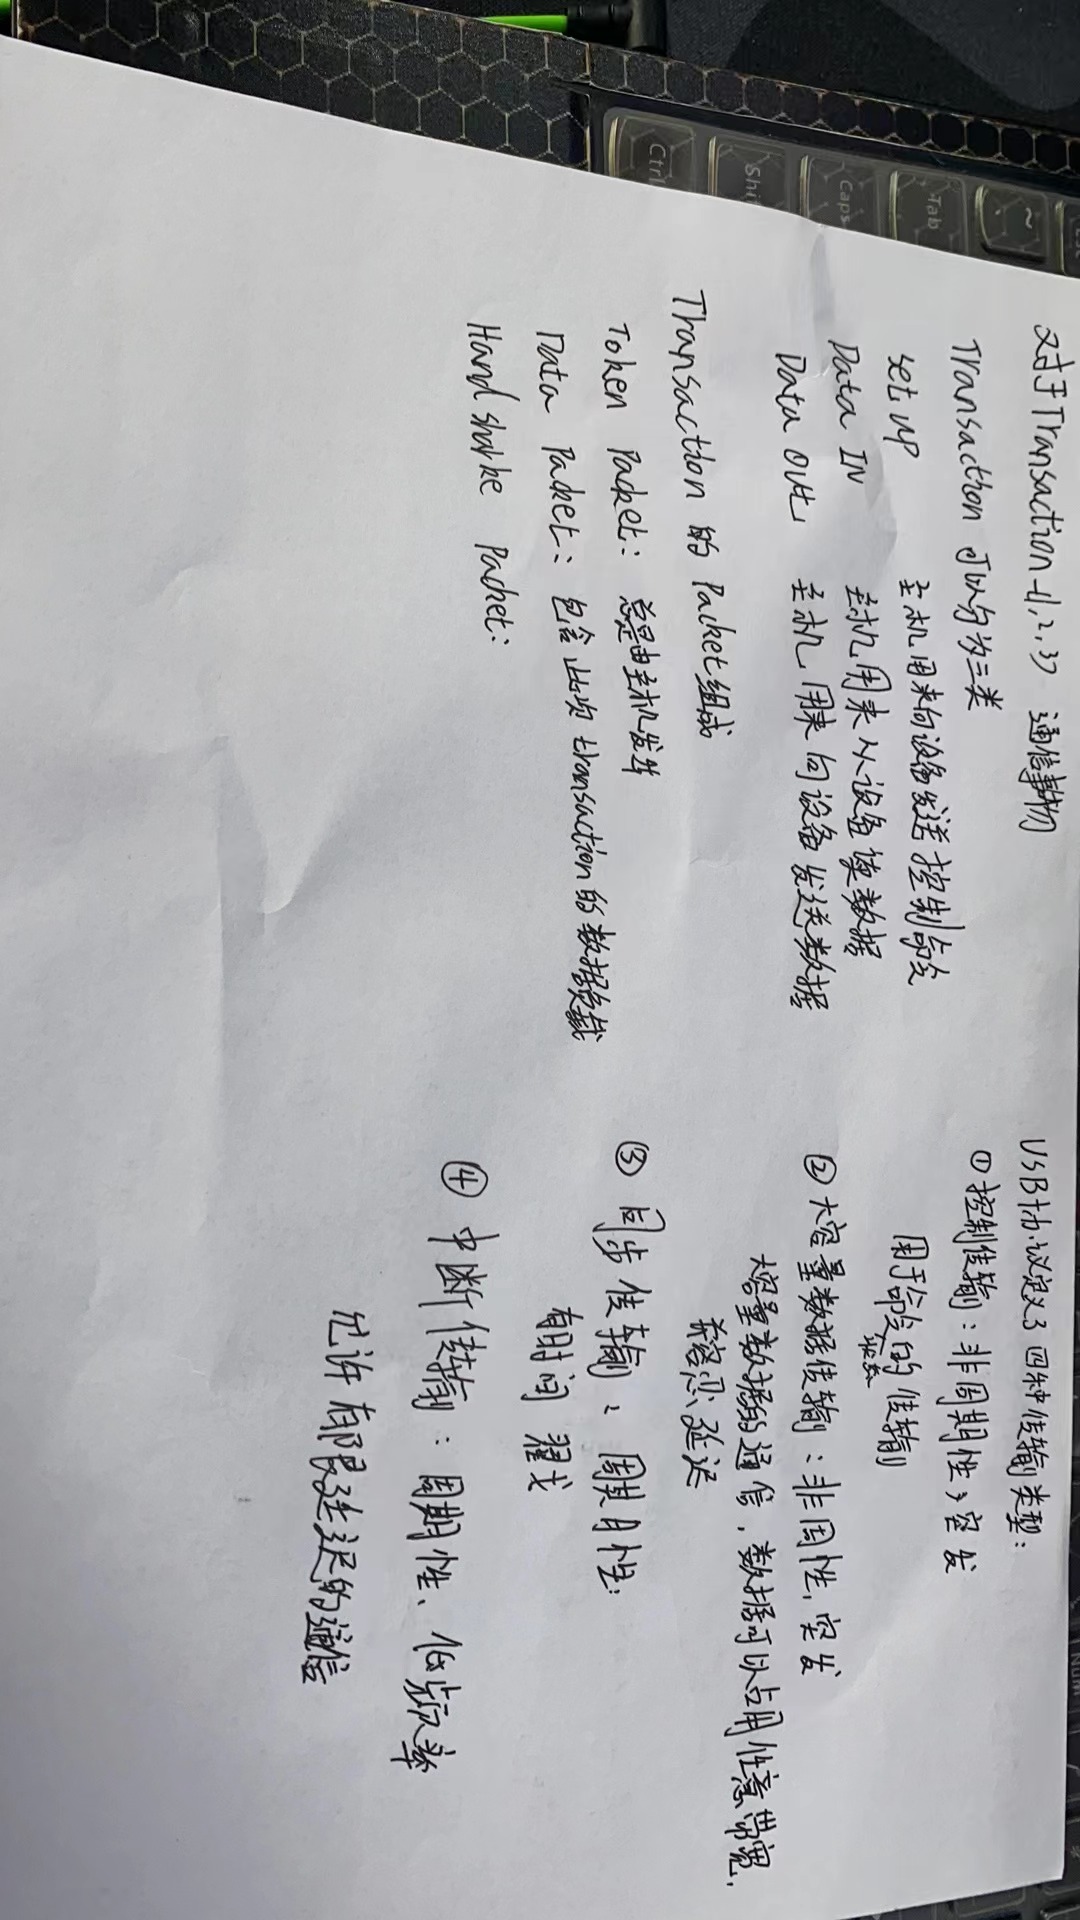 对于Transaction-{1,2,3} 通信事物
Transaction 可以分为三类
set up 主机用来向设备发送控制命令
Data IN 主机用来从设备读数据
Data OUt 主机用来向设备发送数据
Transaction 的 Packet组成
Token Packet: 总是由主机发生
Data Packet: 包含此次 transaction的数据负载
Hand sharke Packet:
USB协议定义了四种传输类型:
① 控制传输:非周期性,突发
用于命令的传输
状态
② 大容量数据传输:非周性,突发
大容量数据的通信,数据可以占用任意带宽,
容忍延迟
③ 同步传输: 周期性:
有时间
④ 中断传输:周期性、低频率
允许有限延迟的通信
~
Tab
Caps
Shi
Ctrl
Esc
Num